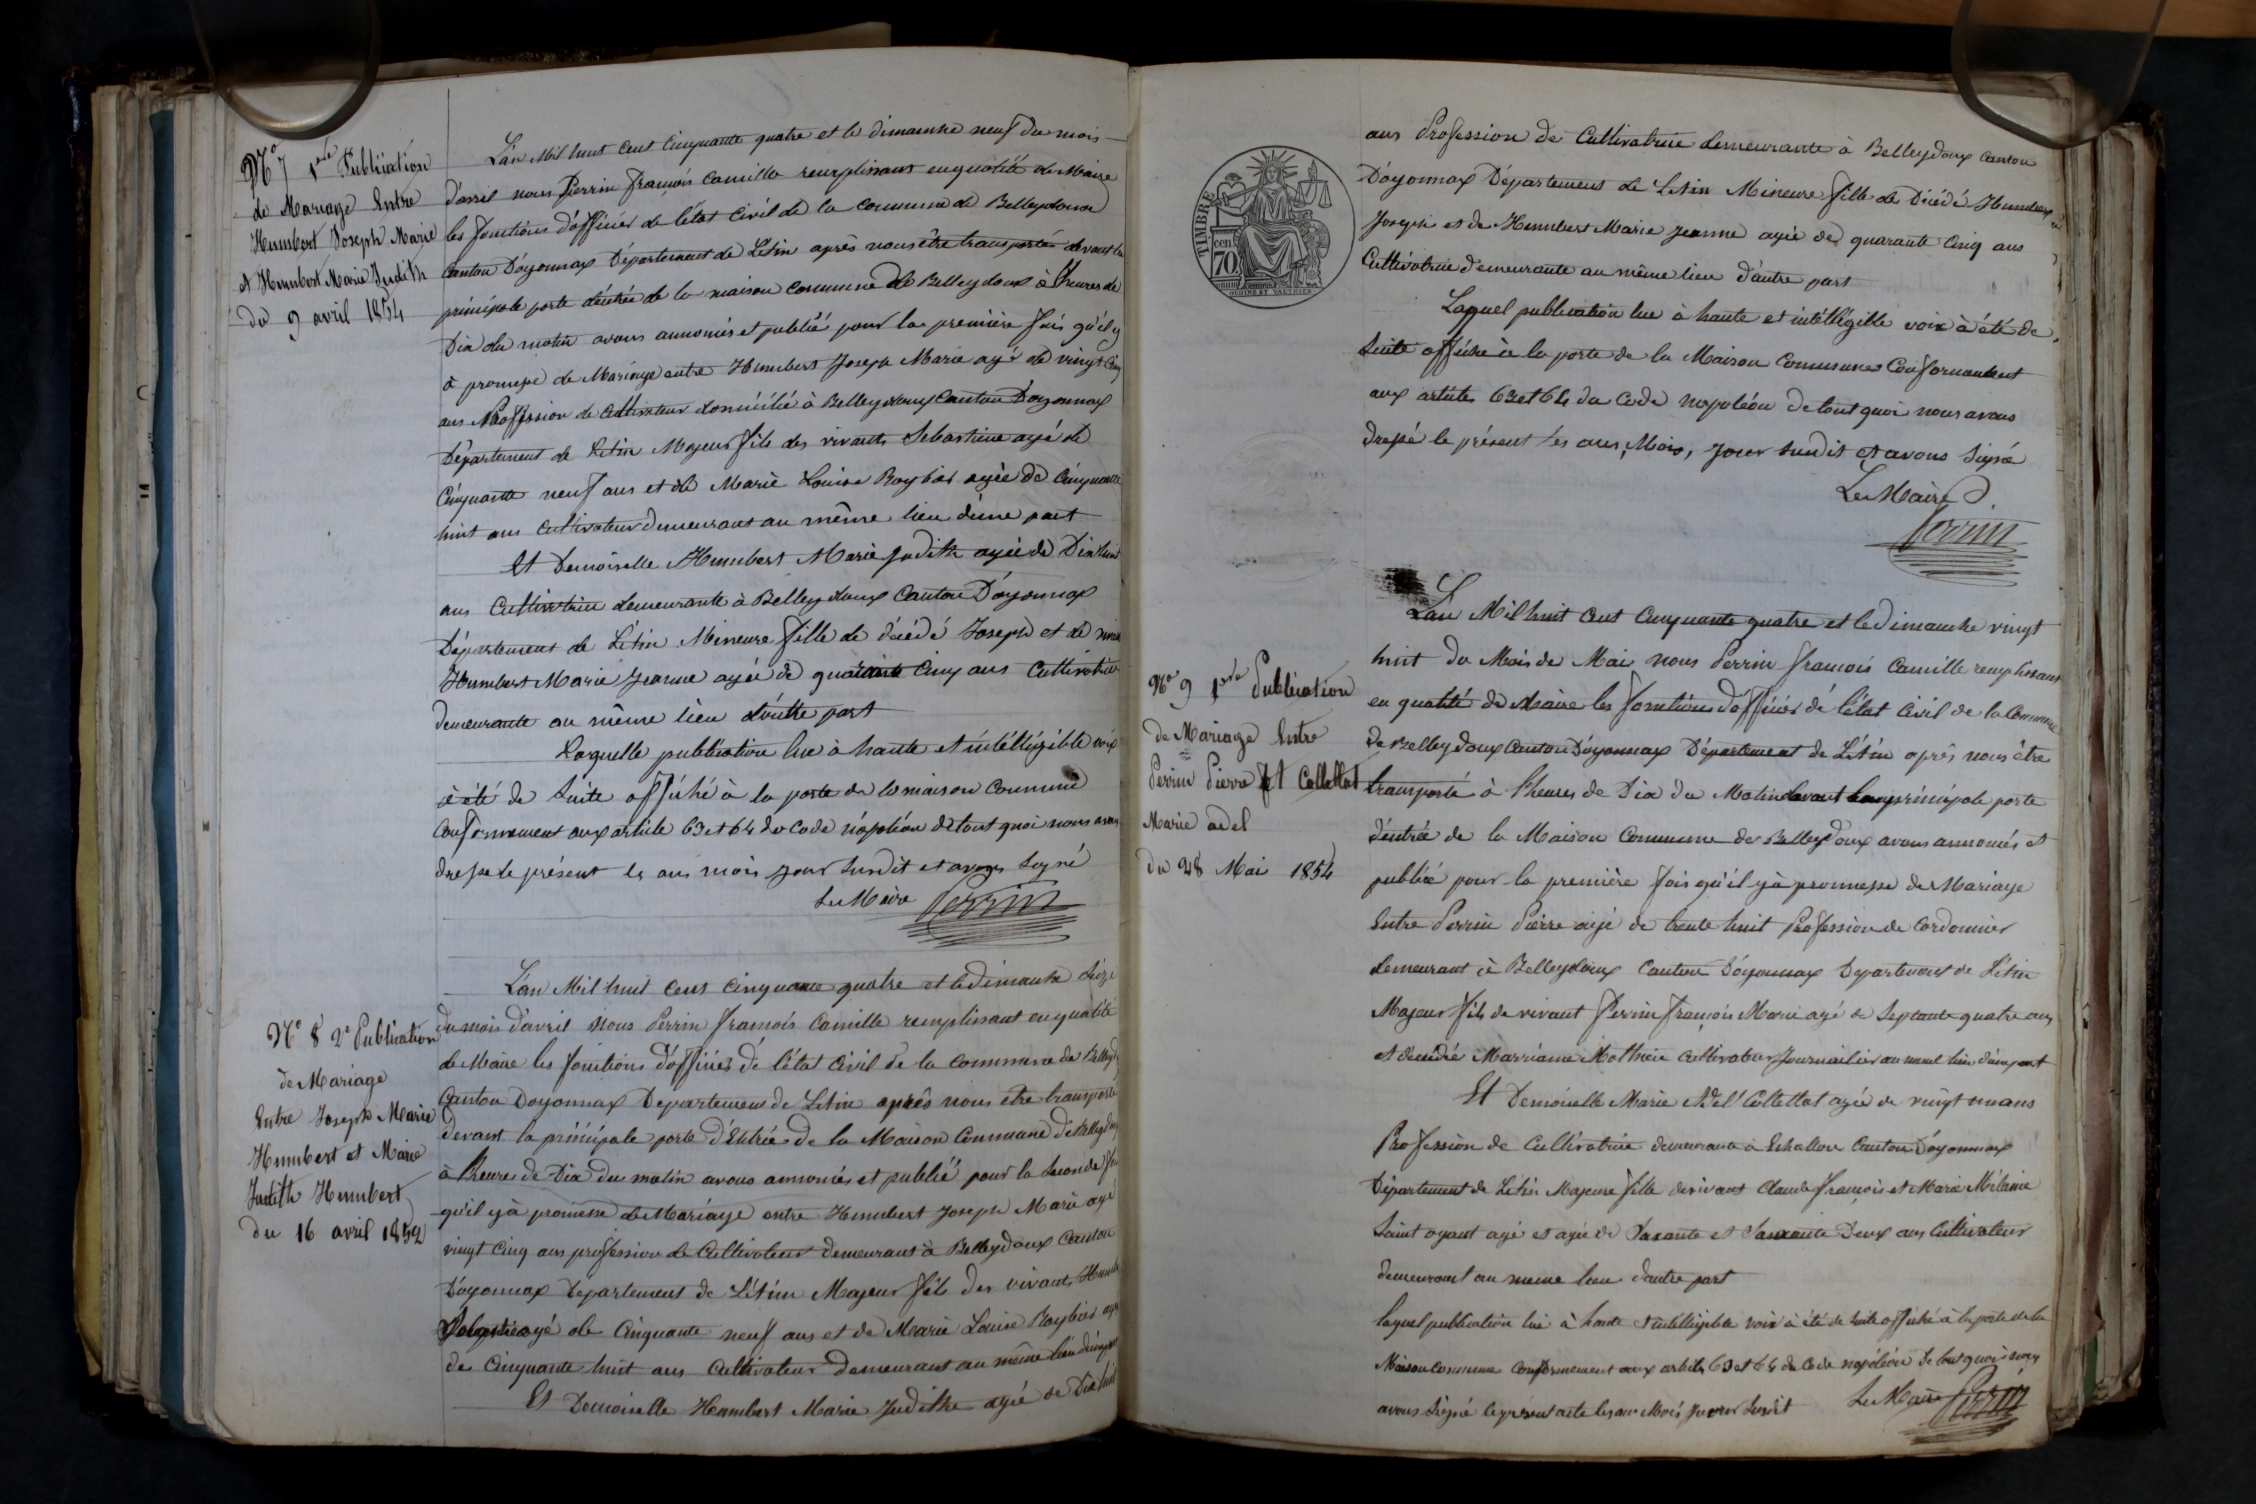 No 7 1ere Publication
de Mariage Entre
Humbert Joseph Marie
et Humbert Marie Judith
du 9 avril 1854
L'an Mil huit cent Cinquante quatre et le dimanche neuf du mois
d'avril nous Perrin françois Camille remplissant en qualité de Maire
les fonctions d'officier de l'état Civil de la commune de Belleydoux
Canton D'oyonnax Département de L'ain après nous être transporté devant la
principale porte d'entrée de la maison commune de Belleydoux à l'heures de
Dix du matin avons annoncés et publié pour la première fois qu'il y
à promesse de Mariage entre Humbert Joseph Marie agé de vingt Cinq
ans Profession de Cultivateur domicilié à Belleydoux Canton D'oyonnax
Département de L'ain Majeur fils des vivants Sebastien agé de
Cinquante neuf ans et de Marie Louise Roybier agée de Cinquante
huit ans cultivateur demeurant au même lieu d'une part
Et Demoiselle Humbert Marie Judith agée de Dix huit
ans Cultivatrice demeurante à Belleydoux Canton D'oyonnax
Département de L'ain Mineure fille de décédé Joseph et de
Humbert Marie Jeanne agée de quarante Cinq ans Cultivatrice
demeurante au même lieu d'autre part
Laquelle publication lue à haute et intélligible voix
à été de Suite affiché à la porte de la maison commune
Conformement aux article 63 et 64 du code napoléon de tout quoi nous avons
dressé le présent les ans mois jour susdit et avons signé
Le Maire Perrin
No 8 2e Publication
de Mariage
Entre Joseph Marie
Humbert et Marie
Judith Humbert
du 16 avril
L'an Mil huit cent Cinquante quatre et le dimanche seize
du mois d'avril Nous Perrin françois Camille remplissant en qualité
de Maire les fonctions d'officier de l'état Civil de la commune de
Canton D'oyonnax Departement de L'ain après nous être transporté
devant la principale porte d'Entrée de la Maison Commune de
à l'heures de Dix du matin avons annoncés et publié pour la seconde
qu'il y à promesse de Mariage entre Humbert Joseph Marie agé
vingt Cinq ans profession de Cultivateur demeurant à Belleydoux Canton
D'oyonnax Département de L'ain Majeur fils des vivants
agé de Cinquante neuf ans et de Marie Louise Roybier
de Cinquante huit ans Cultivateur demeurant au même lieu
Et Demoiselle Humbert Marie Judithe agée de Dix huit
TIMBRE
70
ans Profession de Cultivatrice demeurante à Belleydoux Canton
D'oyonnax Département de L'ain Mineure fille de Décédé Humbert
Joseph et de Humbert Marie Jeanne agée de quarante Cinq ans
Cultivatrice demeurante au même lieu d'autre part
Laquel publication lue à haute et intélligible voix à été de
Suite affiché à la porte de la Maison Commune Conformement
aux article 63 et 64 du Code Napoléon de tout quoi nous avons
dressé le présent les ans, Mois, jour susdit et avons signé
Le Maire
Perrin
No 9 1ere Publication
de Mariage Entre
Perrin Pierre et Collettat
Marie adel
du 28 Mai 1854
L'an Mil huit cent Cinquante quatre et le dimanche vingt
huit du Mois de Mai nous Perrin françois Camille remplissant
en qualité de Maire les fonctions d'officier de l'état Civil de la Commune
de Belleydoux Canton D'oyonnax Département de L'ain après nous être
transporté à l'heures de Dix du Matin devant la principale porte
d'entrée de la Maison Commune de Belleydoux avons annoncés et
publié pour la première fois qu'il y à promesse de Mariage
Entre Perrin Pierre agé de trente huit Profession de Cordonnier
demeurant à Belleydoux Canton D'oyonnax Departement de L'ain
Majeur fils de vivant Perrin françois Marie agé de Septante quatre ans
et décédée Marrianne Mathieu Cultivateur Journailier au meme lieu d'une part
Et Demoiselle Marie Adel Collettat agée de vingt ans
Profession de Cultivatrice demeurante à Echallon Canton D'oyonnax
Département de L'ain Majeure fille de vivant Claude françois et Marie Mélanie
Saint oyant agé et agée de Soixante et Soixante Deux ans Cultivateur
demeurant au meme lieu d'autre part
laquel publication lue à haute et intelligible voix à été de suite affiché à la porte de la
Maison commune Conformement aux article 63 et 64 du Code napoléon de tout quoi nous
avons signé le présent acte les an Mois jour susdit Le Maire Perrin